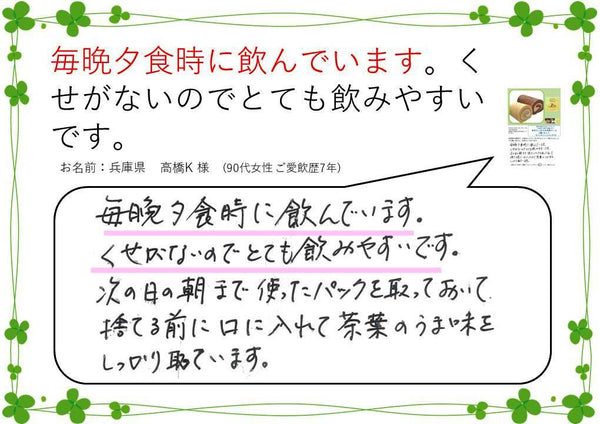 毎晩夕食時に飲んでいます。く
せがないのでとても飲みやすい
です。
お名前：兵庫県　高橋K 様　(90代女性ご愛飲歴7年)
毎晩夕食時に飲んでいます。
くせがないのでとても飲みやすいです。
次の日の朝まで使ったパックを取っておいて
捨てる前に口に入れて茶葉のうま味を
しっかり取ています。